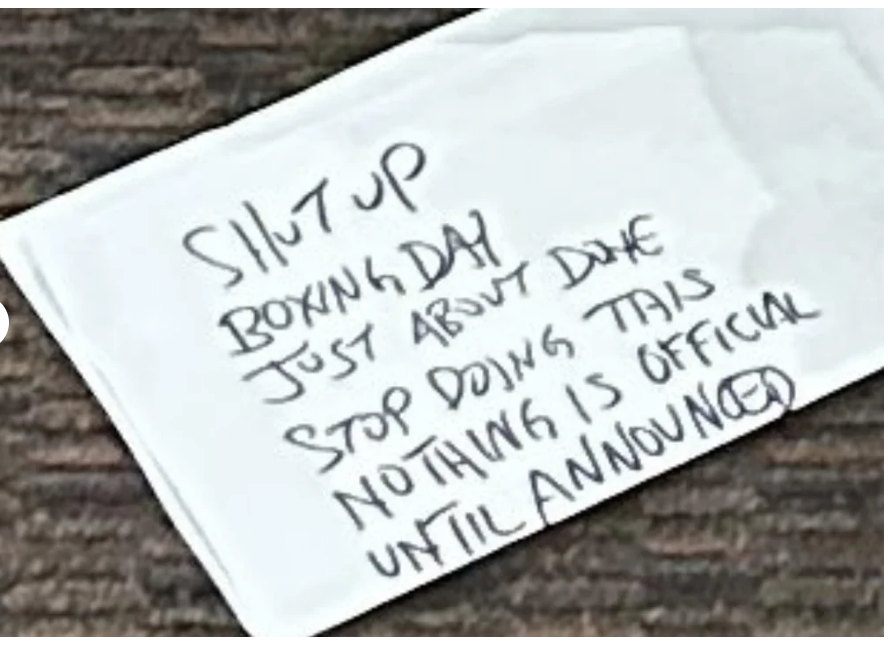 SHUT UP
BOXING DAY
JUST ABOUT DONE
STOP DOING THIS
NOTHING IS OFFICIAL
UNTIL ANNOUNCED